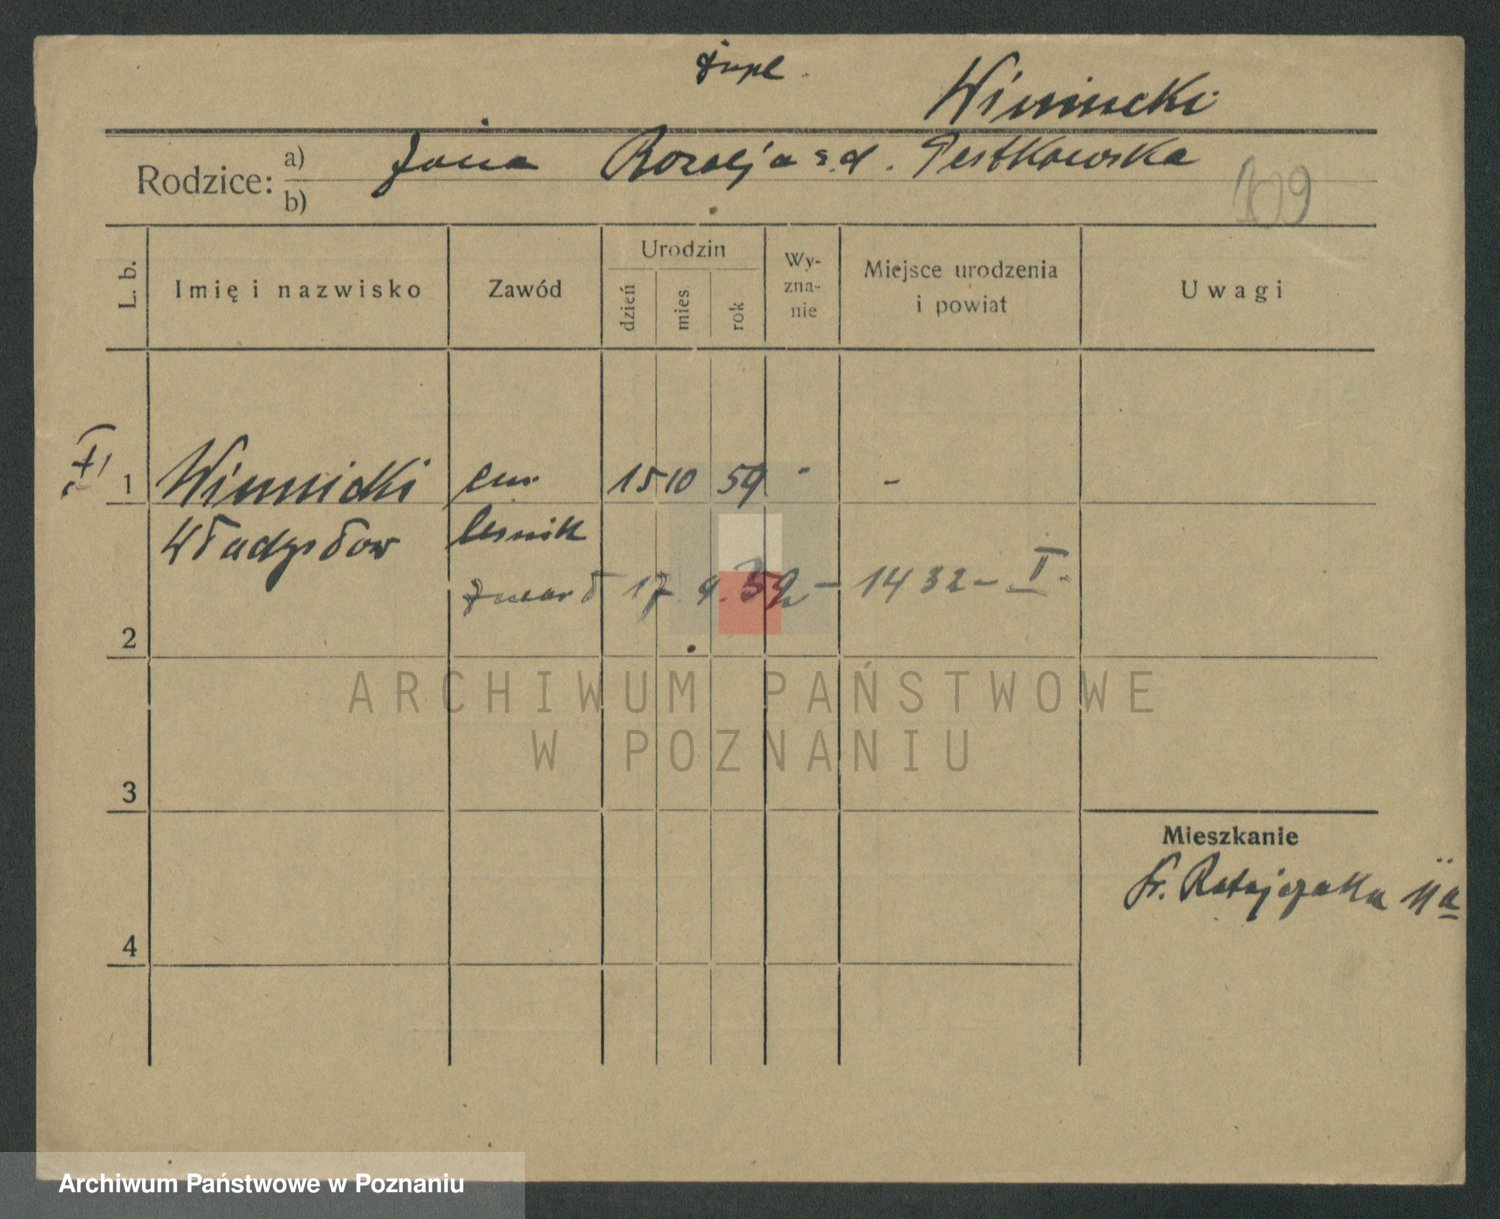 dupl.
Winnicki
Rodzice: a) Jana Rozalja z d. Pestkowska
b)
109
L. b.
Imię i nazwisko
Zawód
Urodzin
dzień
mies
rok
Wy-
zna-
nie
Miejsce urodzenia
i powiat
Uwagi
1 Winnicki em. 15 10 59 - -
Władysław leśnik
zmarł 17 9. 39 - 1432 - I.
2
ARCHIWUM PAŃSTWOWE
W POZNANIU
3
Mieszkanie
Fr. Ratajczaka 11a
4
Archiwum Państwowe w Poznaniu